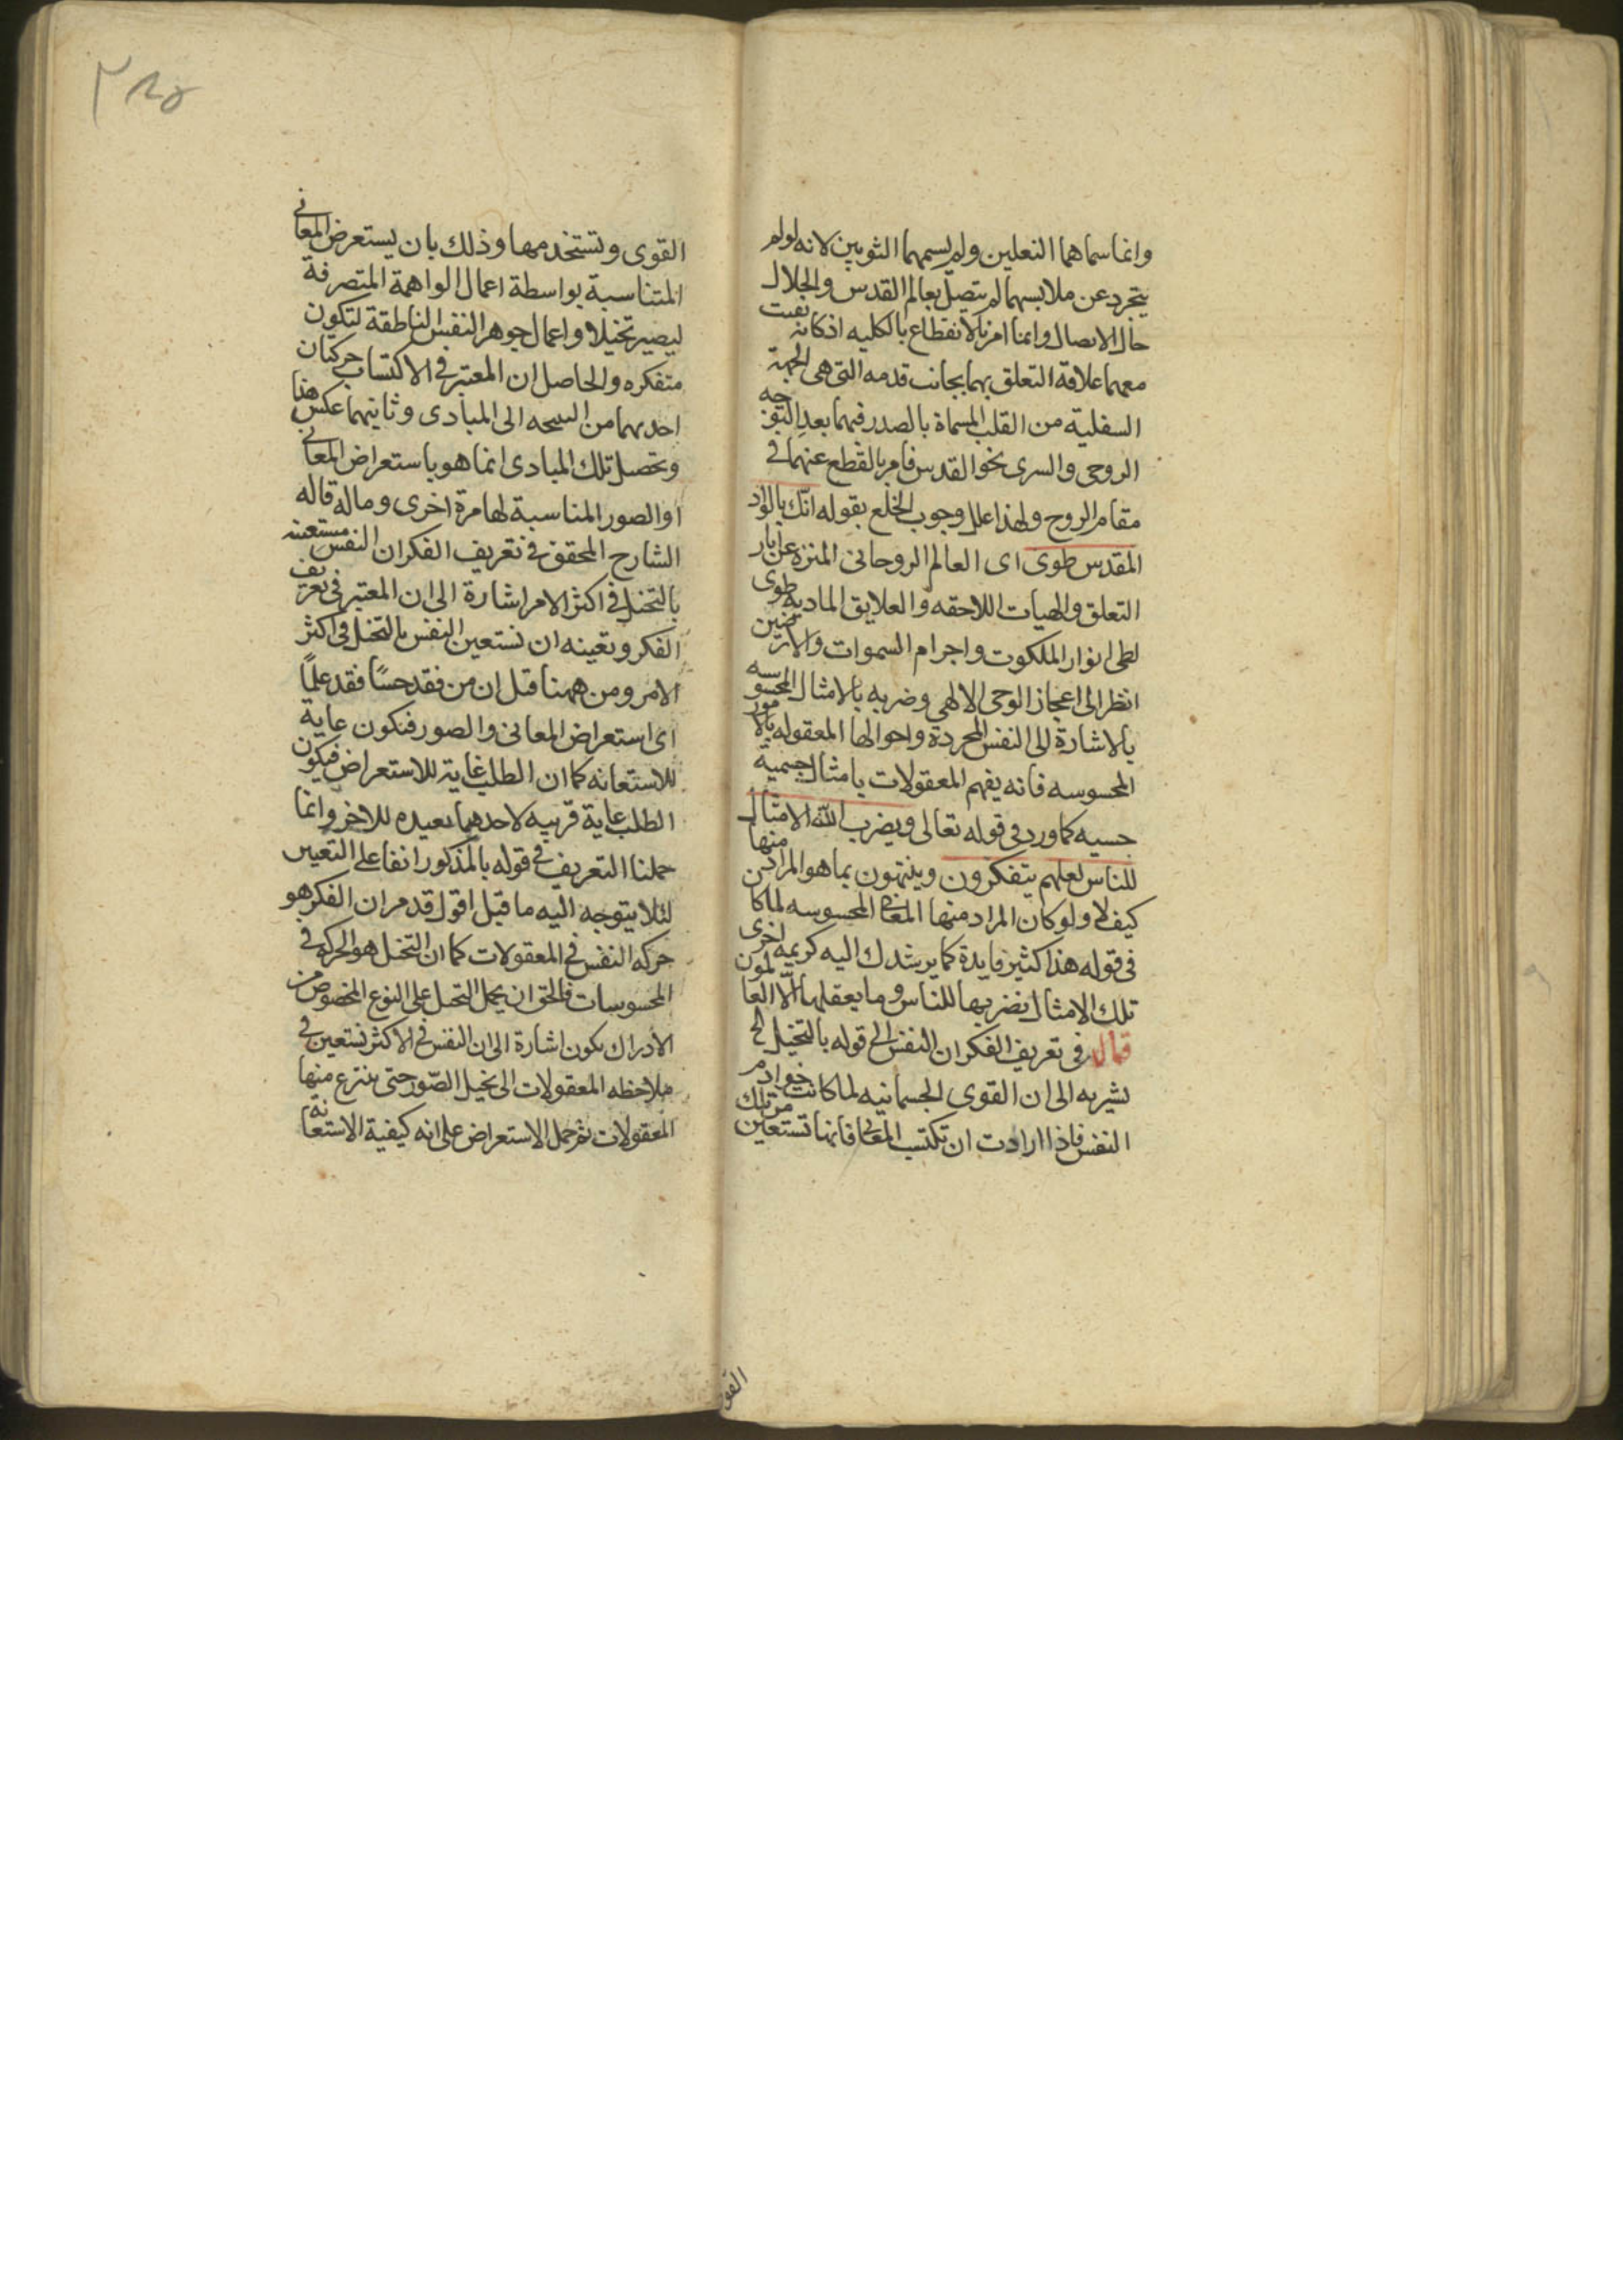 وانما سماهما النعلين ولم يسمهما الثوبين لانه لو لم
يتجرد عن ملابسهما لم يتصل بعالم القدس والجلال
حال الاتصال وانما امر بالانقطاع بالكليه اذ كانه بقيت
معهما علاقة التعلق بهما بجانب قدمه التى هى الجهة
السفلية من القلب المسماة بالصدر فهما بعد التوجه
الروحى والسرى نحو القدس فامر بالقطع عنهما فى
مقام الروح ولهذا علل وجوب الخلع بقوله انّك بالواد
المقدس طوى اى العالم الروحانى المنزه عن اثار
التعلق والهيات اللاحقه والعلايق الماديه طوى
لطى انوار الملكوت واجرام السموات والارضين
انظر الى اعجاز الوحى الالهى وضربه بالامثال المحسوسه
بالاشارة الى النفس المجردة واحوالها المعقوله بالامور
المحسوسه فانه يفهم المعقولات بامثال جسمية
حسيه كما ورد فى قوله تعالى ويضرب الله الامثال
للناس لعلهم يتفكرون وينتهون بما هو المراد منها
كيف لا ولو كان المراد منها المعانى المحسوسه لما كان
فى قوله هذا كثير فايدة كما يرشدك اليه كريمه اخرى
تلك الامثال نضربها للناس وما يعقلها الّا العالمون
قال فى تعريف الفكر ان النفس الى قوله بالتخيل الخ
يشير به الى ان القوى الجسمانيه لما كانت خوادم
النفس فاذا ارادت ان تكتسب المعانى فانها تستعين من تلك
القو
٢٨٥
القوى وتستخدمها وذلك بان يستعرض المعانى
المتناسبة بواسطة اعمال الواهمة المتصرفة
ليصير تخيلا واعمال جوهر النفس الناطقة لتكون
متفكره والحاصل ان المعتبر فى الاكتساب حركتان
احديهما من النتيجه الى المبادى وثانيهما عكس هذا
وتحصل تلك المبادى انما هو باستعراض المعانى
او الصور المناسبة لها مرة اخرى وماله قاله
الشارح المحقق فى تعريف الفكر ان النفس مستعينه
بالتخيل فى اكثر الامر اشارة الى ان المعتبر فى تعريف
الفكر وتعينه ان تستعين النفس بالتخيل فى اكثر
الامر ومن ههنا قيل ان من فقد حسًا فقد علمًا
اى استعراض المعانى والصور فتكون غاية
للاستعانه كما ان الطلب غاية للاستعراض فيكون
الطلب غاية قريبه لاحدهما بعيده للاخر وانما
حملنا التعريف فى قوله بالمذكور انفا على التعيين
لئلا يتوجه اليه ما قيل اقول قد مر ان الفكر هو
حركة النفس فى المعقولات كما ان التخيل هو الحركة فى
المحسوسات فالحق ان يحمل التخيل على النوع المخصوص من
الادراك يكون اشارة الى ان النفس فى الاكثر تستعين فى
ملاحظه المعقولات الى تخيل الصّور حتى ينتزع منها
المعقولات ثم حمل الاستعراض على انه كيفية الاستعانة